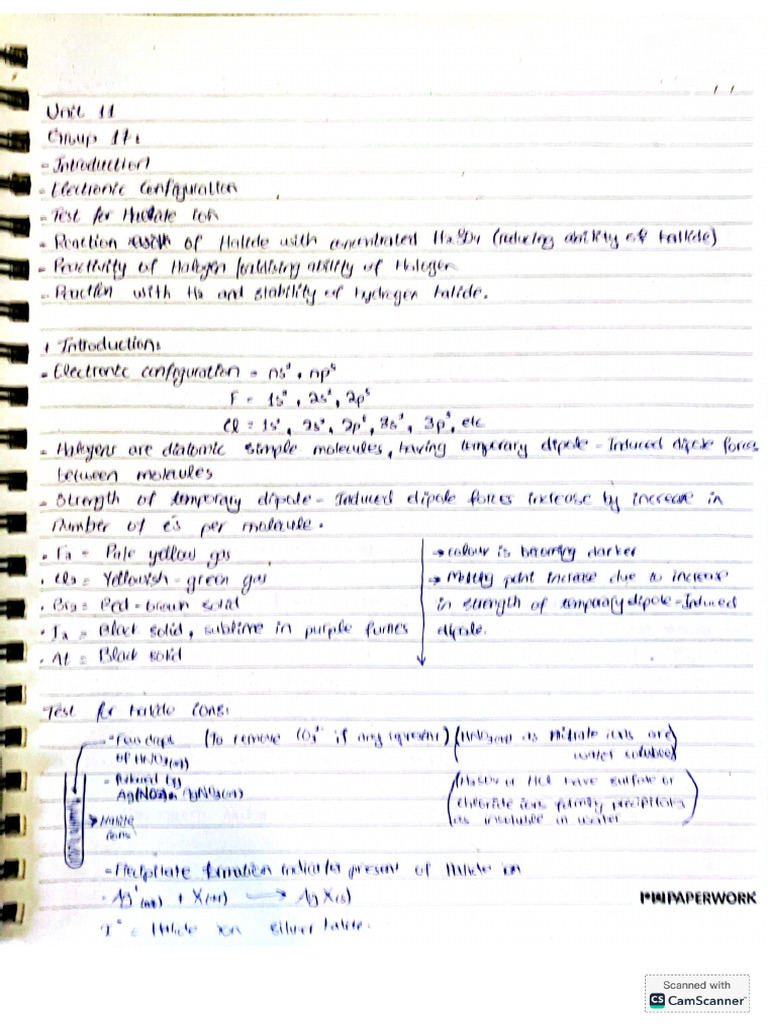 Unit 11
Group 17:
- Introduction
- Electronic Configuration
- Test for Halide Ion
- Reaction of Halide with concentrated H2SO4 (reducing ability of halide)
- Reactivity of Halogen /oxidising ability of Halogen
- Reaction with H2 and stability of hydrogen halide.
+ Introduction:
- Electronic configuration = ns², np⁵
F = 1s², 2s², 2p⁵
Cl = 1s², 2s², 2p⁶, 3s², 3p⁵, etc
- Halogens are diatomic simple molecules, having temporary dipole - Induced dipole forces
between molecules
- Strength of temporary dipole - Induced dipole forces increase by increase in
number of e's per molecule.
• F2 = Pale yellow gas
• Cl2 = Yellowish - green gas
• Br2 = Red - brown solid
• I2 = Black solid, sublime in purple fumes
• At = Black solid
→ colour is becoming darker
→ Melting point increase due to increase
in strength of temporary dipole - Induced
dipole.
Test for halide ions:
- Few drops (To remove CO3²⁻ if any present) (HNO3 as Nitrate ions are
of HNO3(aq) water soluble)
- Followed by
AgNO3(aq)
(H2SO4 or HCl have sulfate or
chloride ions forming precipitate
as insoluble in water
→ Halide
ions
- Precipitate formation indicates present of Halide ion
• Ag⁺(aq) + X⁻(aq) → AgX(s)
X⁻ = Halide ion silver halide.
PAPERWORK
Scanned with
CS CamScanner